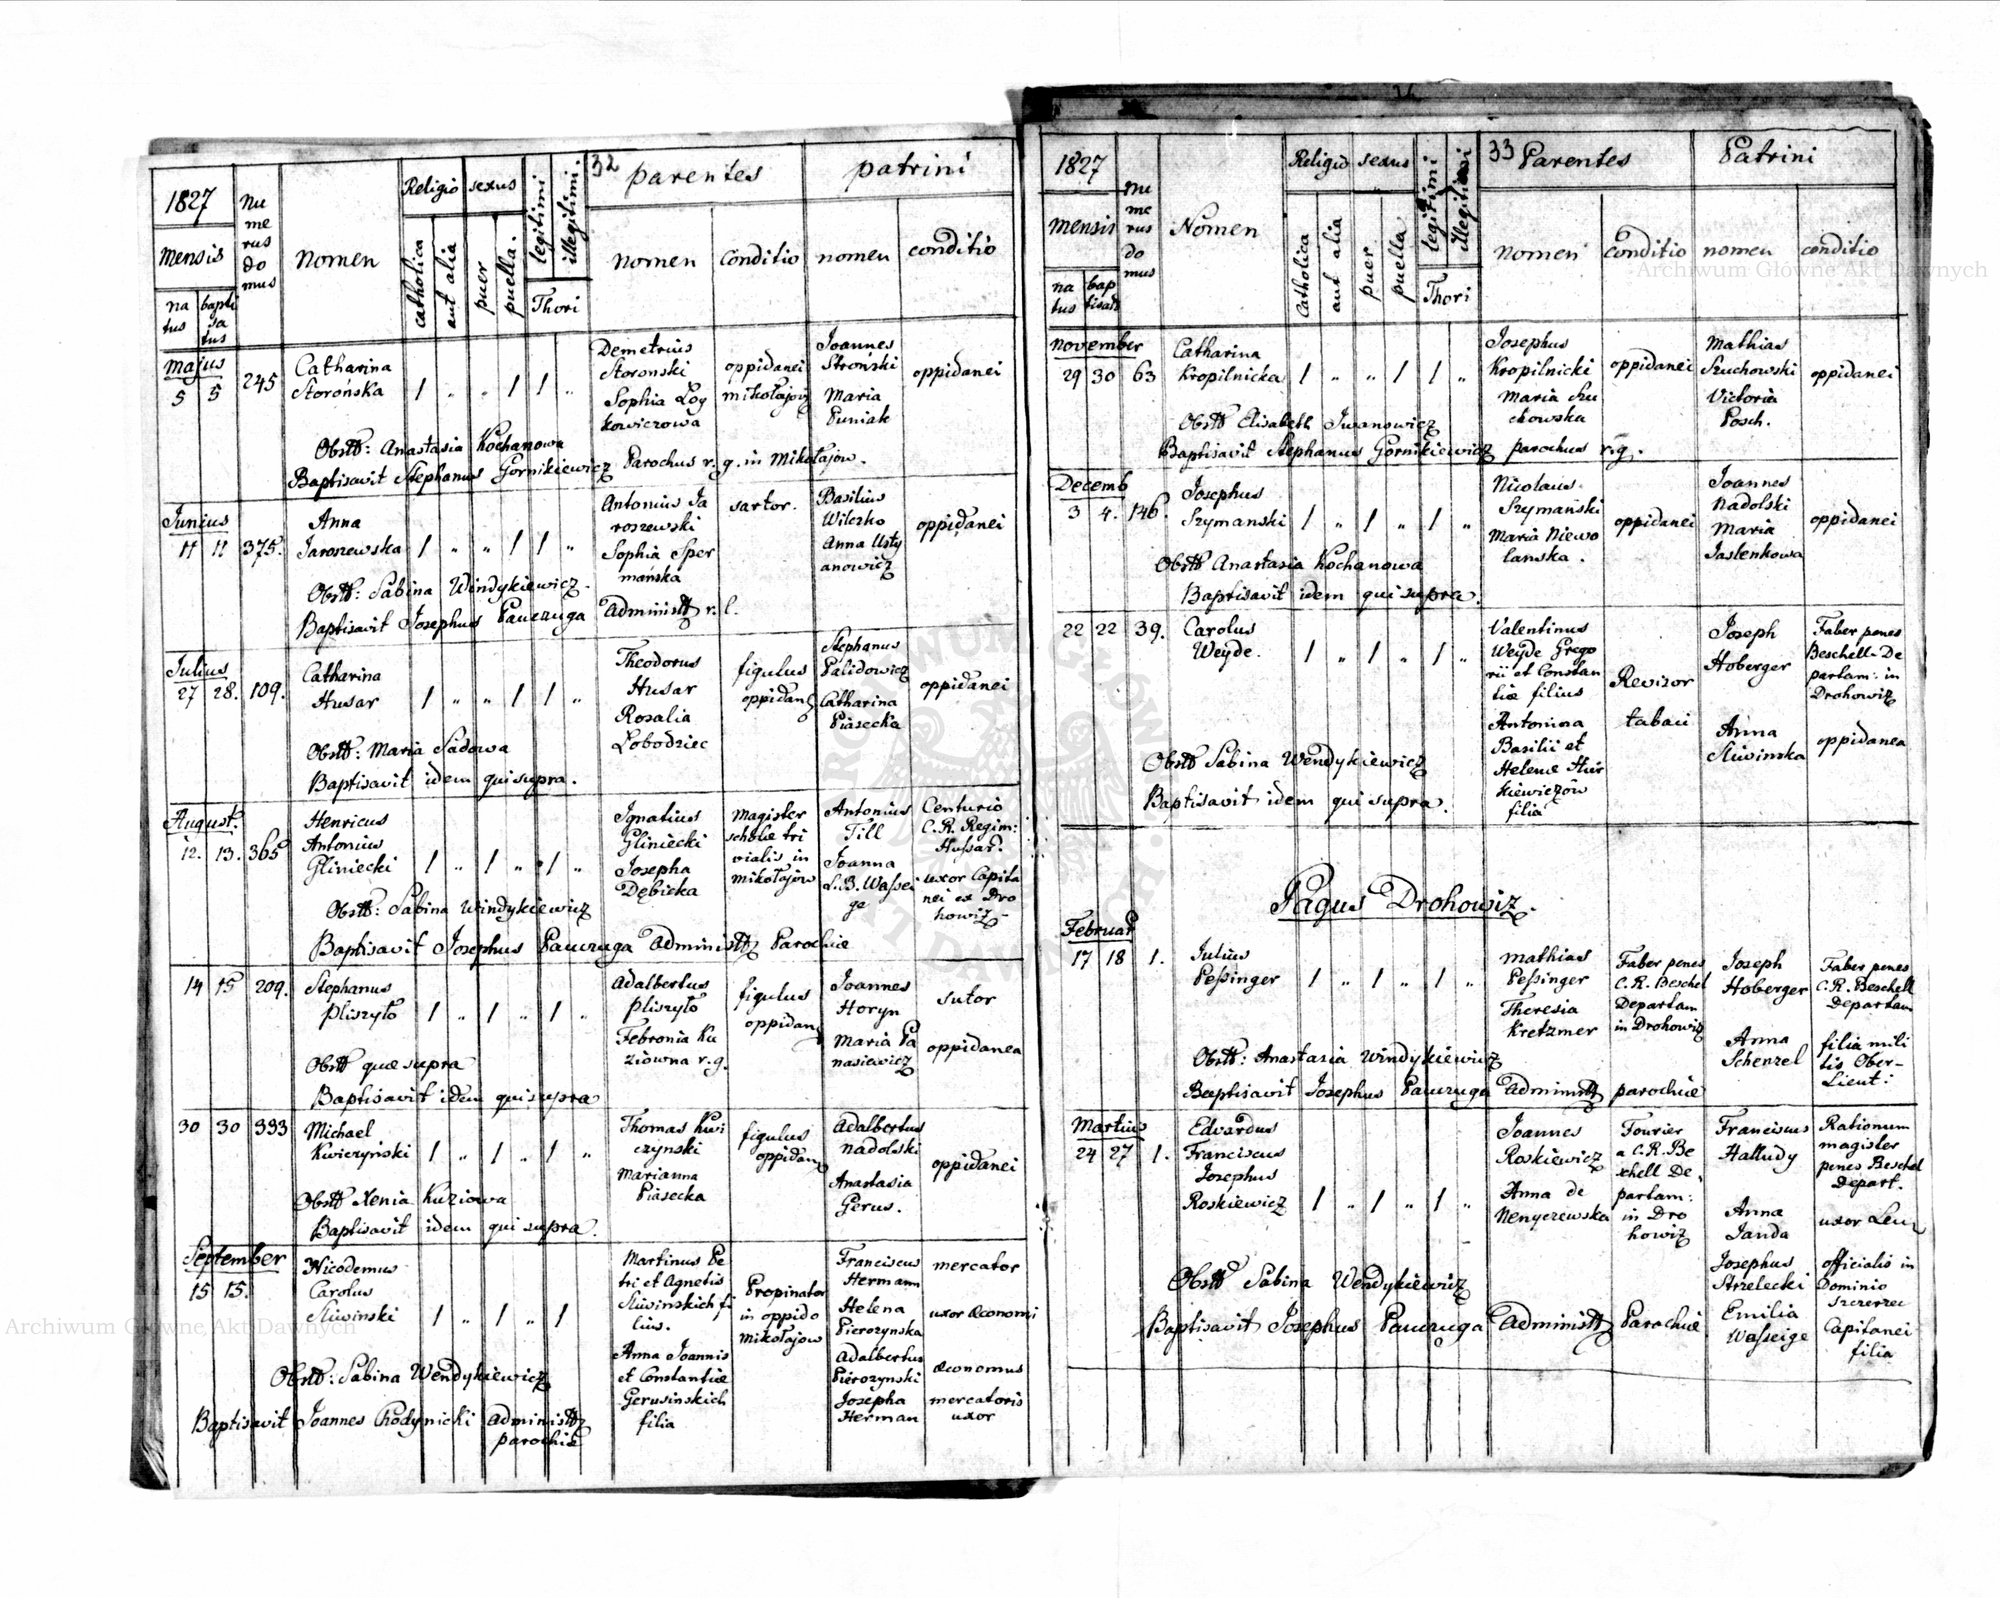 32
1827
Numerus domus
Religio
sexus
legitimi
illegitimi
parentes
patrini
mensis
nomen
catholica
aut alia
puer
puella.
Thori
nomen
Conditio
nomen
conditio
natus
baptisatus
Majus
5 5 245
Catharina
Storońska
1 " " 1 1 "
Demetrius
Storonski
Sophia Log
kowiczowa
oppidanei
mikołajow
Joannes
Stroński
Maria
Puniak
oppidanei
Obstt: Anastasia Kochanowa
Baptisavit Stephanus Gornikiewicz Parochus r. g. in Mikołajow.
Junius
11 11 375.
Anna
Jaroszewska
1 " " 1 1 "
Antonius Ja
roszewski
Sophia Sper
mańska
sartor.
Basilius
Wilczko
Anna Usty
anowicz
oppidanei
Obstt: Sabina Windykiewicz.
Baptisavit Josephus Pauczuga Administt r. l.
Julius
27 28. 109.
Catharina
Husar
1 " " 1 1 "
Theodorus
Husar
Rosalia
Łobodziec
figulus
oppidan
Stephanus
Palidowicz
Catharina
Piasecka
oppidanei
Obstt: Maria Sadowa
Baptisavit idem qui supra.
August.
12. 13. 365
Henricus
Antonius
Gliniecki
1 " 1 " 1 "
Ignatius
Gliniecki
Josepha
Dębicka
Magister
scholæ tri
vialis in
mikołajów
Antonius
Till
Joanna
L. B. Wassei
ge
Centurio
C. R. Regim:
Hussar.
uxor Capita
nei ex Dro
howiz
Obstt: Sabina Windykiewicz
Baptisavit Josephus Pauczuga Administt Parochiæ
14 15 209.
Stephanus
Pliszyło
1 " 1 " 1 "
Adalbertus
Pliszyło
Febronia Ku
ziowna r. g.
figulus
oppidan
Joannes
Horyn
Maria Pa
nasiewicz
sutor
oppidanea
Obstt quæ supra
Baptisavit idem qui supra
30 30 333
Michael
Kwiczynski
1 " 1 " 1 "
Thomas Kwi
czynski
Marianna
Piasecka
figulus
oppidan
Adalbertus
nadolski
Anastasia
Gerus.
oppidanei
Obstt Xenia Kuziowa
Baptisavit idem qui supra.
September
15 15.
Nicodemus
Carolus
Sliwinski
1 " 1 " 1
Martinus Pe
tri et Agnetis
Sliwinskich fi
lius.
Anna Joannis
et Constantiæ
Gerusinskich
filia
Propinator
in oppido
mikołajow
Franciscus
Hermann
Helena
Pierozynska
Adalbertus
Pierozynski
Josepha
Herman
mercator
uxor œconomi
œconomus
mercatoris
uxor
Obstt: Sabina Wendykiewicz
Baptisavit Joannes Chodynicki Administt
parochiæ
33
1827
Numerus domus
Religio
sexus
legitimi
illegitimi
Parentes
Patrini
mensis
Nomen
Catholica
aut alia
puer
puella
Thori
nomen
conditio
nomen
conditio
natus
baptisatus
november
29 30 63
Catharina
Kropilnicka
1 " " 1 1 "
Josephus
Kropilnicki
Maria Szu
chowska
oppidanei
Mathias
Szuchowski
Victoria
Posch.
oppidanei
Obstt Elisabeth Iwanowicz
Baptisavit Stephanus Gornikiewicz parochus r. g.
Decemb
3 4. 146.
Josephus
Szymanski
1 " 1 " 1 "
Nicolaus
Szymański
Maria Niewo
lanska.
oppidanei
Joannes
nadolski
Maria
Jaslenkowa
oppidanei
Obstt Anastasia Kochanowa
Baptisavit idem qui supra.
22 22 39.
Carolus
Weyde.
1 " 1 " 1 "
Valentinus
Weyde Grego
rii et Constan
tiæ filius
Antonina
Basilii et
Helenæ Hur
kiewiczów
filia
Revisor
tabaci
Joseph
Hoberger
Anna
Sliwinska
Faber penes
Beschell-De
partam: in
Drohowiz
oppidanea
Obstt Sabina Wendykiewicz
Baptisavit idem qui supra.
Pagus Drohowiz.
Februar
17 18 1.
Julius
Pessinger
1 " 1 " 1 "
Mathias
Pessinger
Theresia
Kretzmer
Faber penes
C. R. Beschel
Departam
in Drohowiz
Joseph
Hoberger
Anna
Schenzel
Faber penes
C. R. Beschell
Departam
filia mili
tis Ober-
Lieut:
Obstt: Anastasia Windykiewicz
Baptisavit Josephus Pauczuga Administt parochiæ
Martius
24 27 1.
Edvardus
Franciscus
Josephus
Roskiewicz
1 " 1 " 1 "
Joannes
Roskiewicz
Anna de
Nenyczewska
Fourier
a C. R. Be
schell De
partam:
in Dro
howiz
Franciscus
Halludy
Anna
Janda
Josephus
Strzelecki
Emilia
Wasseige
Rationum
magister
penes Beschel
Depart.
uxor
officialis in
Dominio
Szczerzec
Capitanei
filia
Obstt Sabina Wendykiewicz
Baptisavit Josephus Pauczuga Administt Parochiæ
Archiwum Główne Akt Dawnych
Archiwum Główne Akt Dawnych
ARCHIWUM GŁÓWNE AKT DAWNYCH